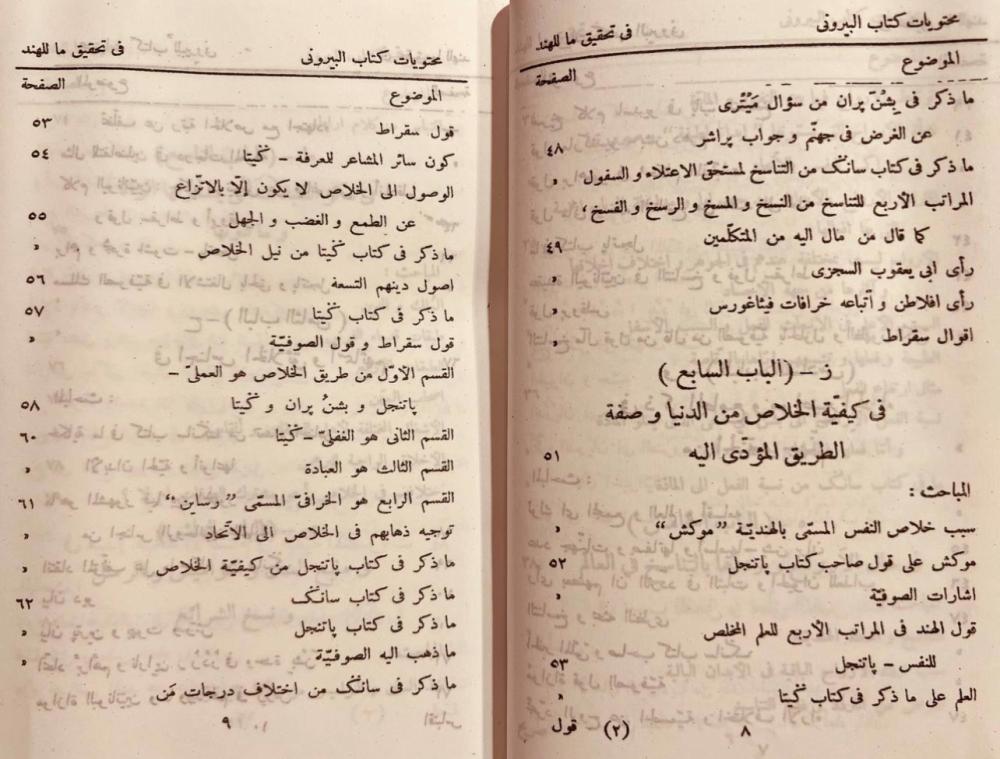 محتويات كتاب البيرونى فى تحقيق ما للهند
الموضوع الصفحة
ما ذكر فى بشنّ پران من سؤال مَيْتْرى
عن الغرض فى جهنّم و جواب پراشر ٤٨
ما ذكر فى كتاب سانگ من التناسخ لمستحقّ الاعتلاء و السفول »
المراتب الأربع للتناسخ من النسخ و المسخ و الرسخ و الفسخ ،
كما قال من مال اليه من المتكلّمين ٤٩
رأى ابى يعقوب السجزى »
رأى افلاطن و أتباعه خرافات فيثاغورس »
اقوال سقراط »
ز – (الباب السابع)
فى كيفيّة الخلاص من الدنيا و صفة
الطريق المؤدّى اليه ٥١
المباحث :
سبب خلاص النفس المسمّى بالهنديّة ”موكش“ »
موكش على قول صاحب كتاب پاتنجل ٥٢
اشارات الصوفيّة »
قول الهند فى المراتب الأربع للعلم المخلص
للنفس – پاتنجل ٥٣
العلم على ما ذكر فى كتاب گيتا »
٨ (٢) قول
محتويات كتاب البيرونى فى تحقيق ما للهند
الموضوع الصفحة
قول سقراط ٥٣
كون سائر المشاعر للمعرفة – گيتا ٥٤
الوصول الى الخلاص لا يكون إلّا بالانزاع
عن الطمع و الغضب و الجهل ٥٥
ما ذكر فى كتاب گيتا من نيل الخلاص »
اصول دينهم التسعة ٥٦
ما ذكر فى كتاب گيتا ٥٧
قول سقراط و قول الصوفيّة »
القسم الأوّل من طريق الخلاص هو العملىّ –
پاتنجل و بشنُ پران و گيتا ٥٨
القسم الثانى هو الغفلىّ – گيتا ٦٠
القسم الثالث هو العبادة »
القسم الرابع هو الخرافىّ المسمّى ”رساين“ ٦١
توجيه ذهابهم فى الخلاص الى الآتّحاد »
ما ذكر فى كتاب پاتنجل من كيفيّة الخلاص »
ما ذكر فى كتاب سانگ ٦٢
ما ذكر فى كتاب پاتنجل »
ما ذهب اليه الصوفيّة »
ما ذكر فى سانگ من اختلاف درجات مَن »
٩ اقتباس